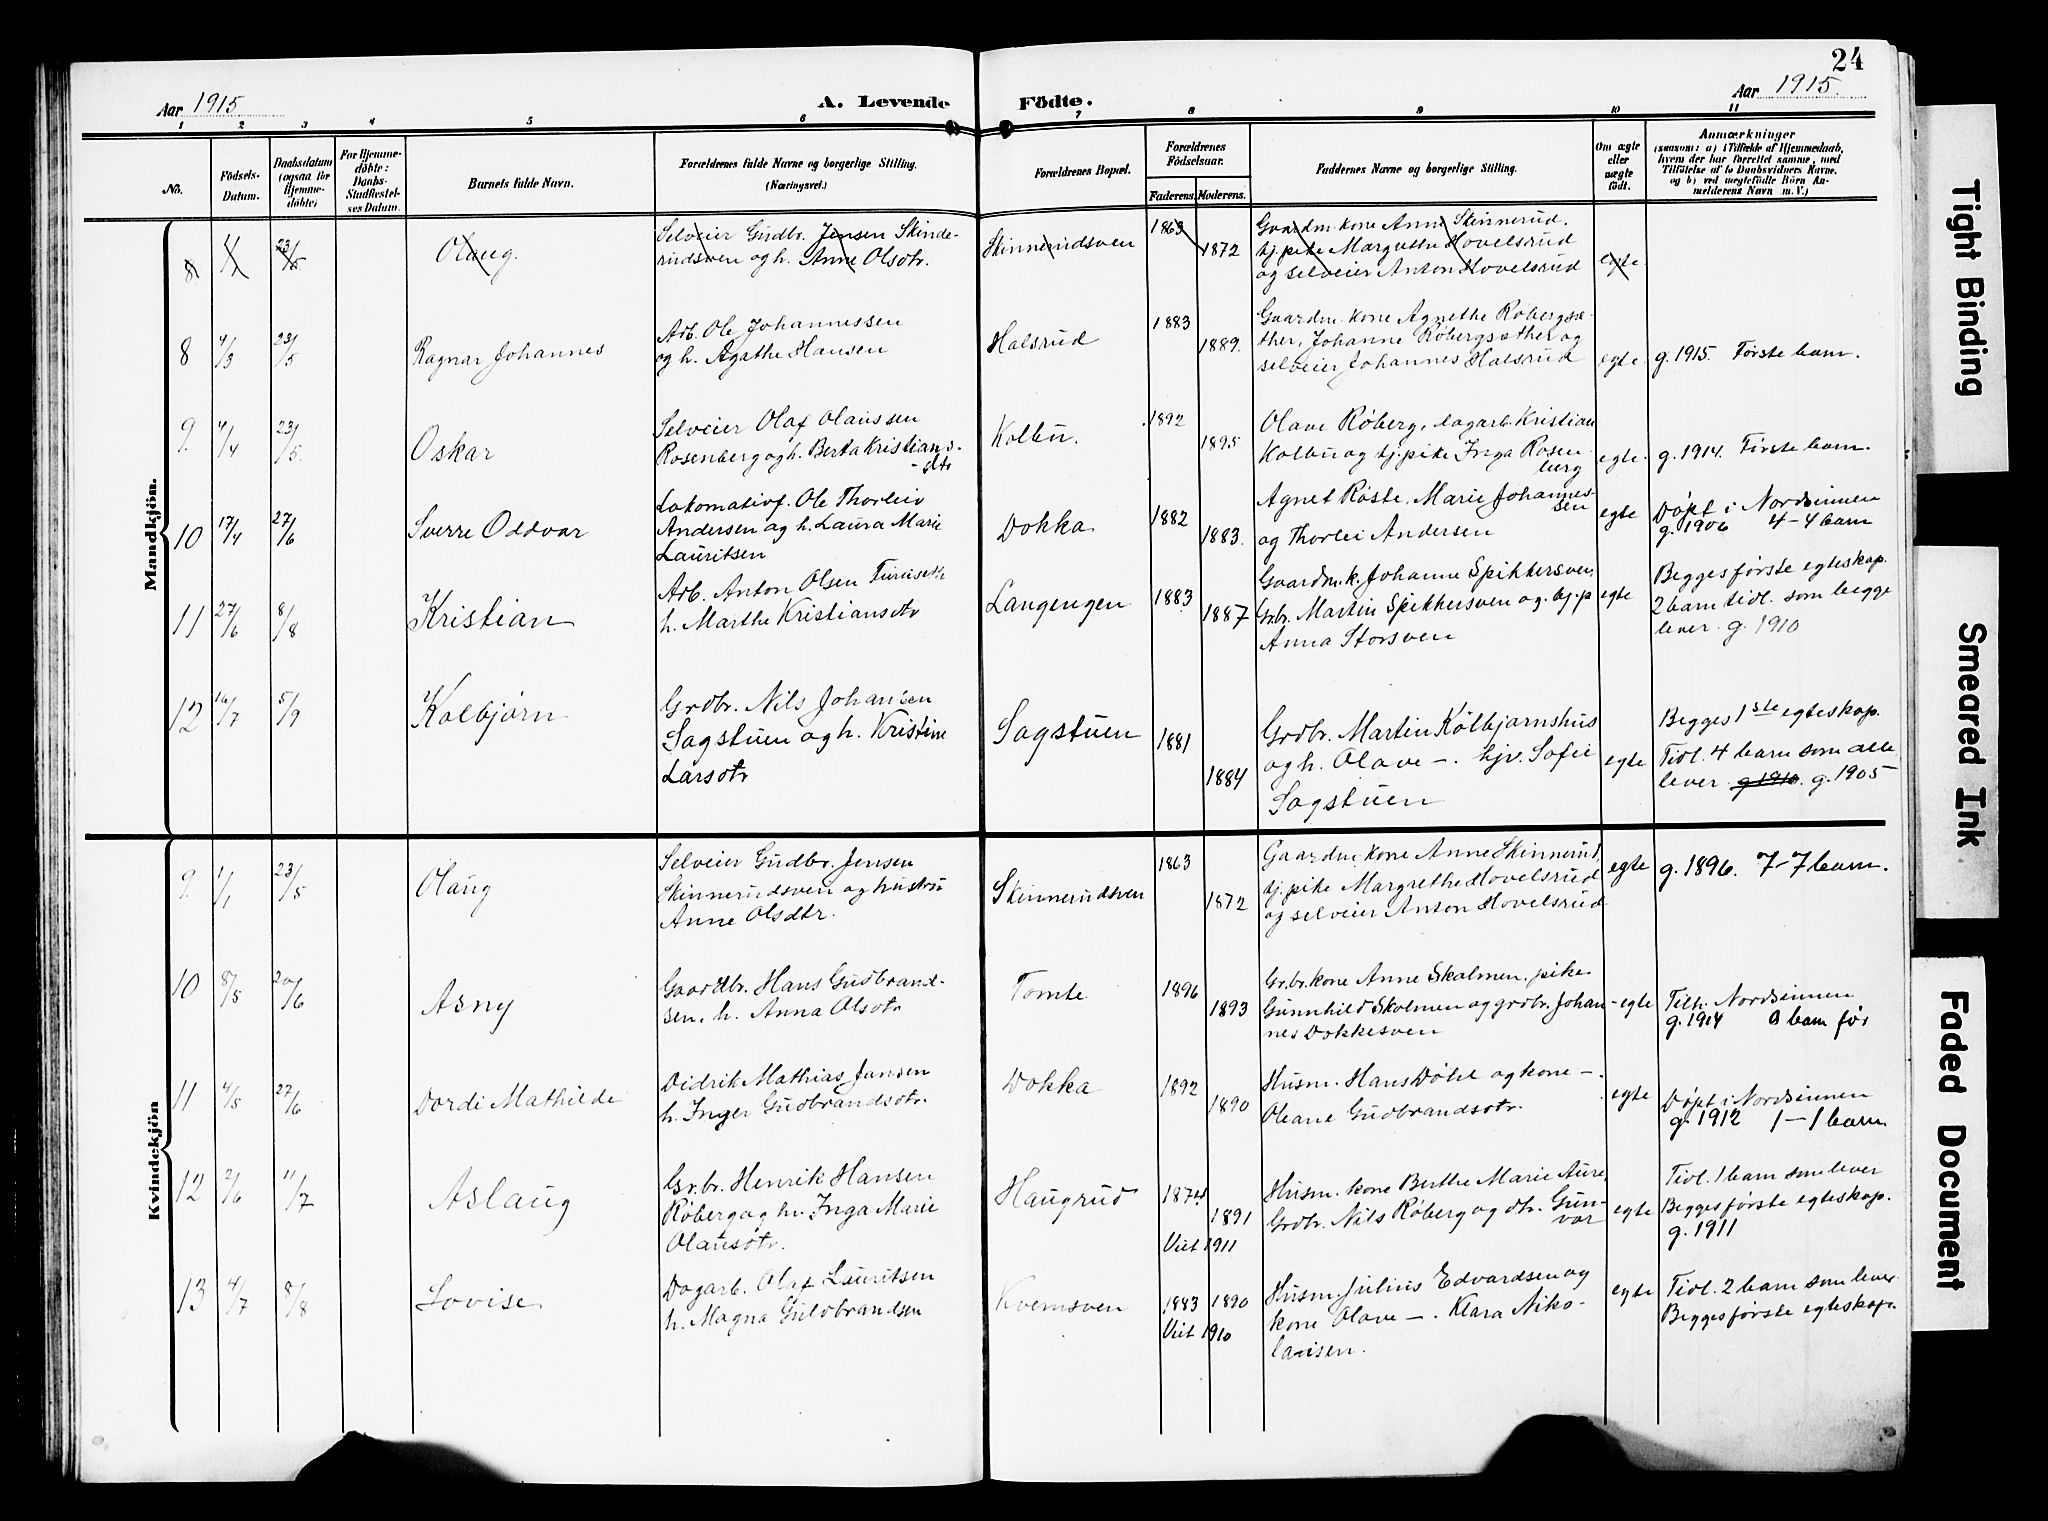 24
Aar 1915
A. Levende Födte.
Aar 1915.
1 2 3 4 5 6 7 8 9 10 11
No.
Födsels-
Datum.
Daabsdatum
(ogsaa for
Hjemme-
döbte)
For Hjemme-
döbte:
Daabs-
Stadfæstel-
ses Datum.
Barnets fulde Navn.
Forældrenes fulde Navne og borgerlige Stilling.
(Næringsvei.)
Forældrenes Bopæl.
Forældrenes
Födselsaar.
Faderens. Moderens.
Faddernes Navne og borgerlige Stilling.
Om ægte
eller
uægte
født.
Anmærkninger
(saasom: a) i Tilfælde af Hjemmedaab,
hvem der har forrettet samme, med
Tilföielse af to Daabsvidners Navne,
og b) ved uægtefödte Börn An-
melderens Navn m. V.)
Mandkjön.
8 1/1 23/5
Olaug.
Selveier Gudbr. Jensen Skinde-
rudsven og h. Anne Olsdtr.
Skinnerudsven
1863
1872
Gaardm. kone Anne Skinnerud.
tj. pike Margrethe Hovelsrud
og selveier Anton Hovelsrud
egte.
8 4/3 23/5
Ragnar Johannes
Arb. Ole Johannessen
og h. Agathe Hansen
Halsrud
1883
1889.
Gaardm. kone Agnethe Røbergsæ-
ther, Johanne Røbergsæther og
selveier Johannes Halsrud
egte.
g. 1915. Første barn.
9. 4/4 23/5.
Oskar
Selveier Olaf Olaussen
Rosenberg og h. Berta Kristians-
-dtr
Kolbu.
1892
1895.
Olave Røberg, dagarb. Kristian
Kolbu og tj. pike Inga Rosen-
berg
egte.
g. 1914. Første barn.
10 17/4 27/6
Sverre Oddvar
Lokomativf. Ole Thorleiv
Andersen og h. Laura Marie
Lauritsen
Dokka
1882
1883.
Agnet Røste. Marie Johannes-
sen
og Thorlei Andersen
egte
Døpt i Nordsinnen
g. 1906 4-4 barn
11 27/6 8/8
Kristian
Arb. Anton Olsen Furuseth
h. Marthe Kristiansdtr
Langengen
1883
1887
Gaardm. k. Johanne Spikkersven,
Grbr. Martin Spikkersven og tj. p
Anna Storsven
egte
Begges første egteskap.
2 barn tidl. som begge
lever. g. 1910
12 16/7 5/9
Kolbjørn
Grdbr. Nils Johansen
Sagstuen og h. Kristine
Larsdtr
Sagstuen
1881
1884
Grdbr. Martin Kolbjørnshus
og h. Olave –. hjv. Sofie
Sagstuen
egte
Begges 1ste egteskap.
Tidl. 4 barn som alle
lever. g 1910. g. 1905
Kvindekjön
9. 1/1 23/5
Olaug
Selveier Gudbr. Jensen
Skinnerudsven og hustru
Anne Olsdtr.
Skinnerudsven
1863
1872
Gaardm. kone Anne Skinnerud,
tj. pike Margrethe Hovelsrud
og selveier Anton Hovelsrud
egte
g. 1896. 7-7 barn.
10 8/5 20/6
Asny
Gaardbr. Hans Gudbrand-
sen. h. Anna Olsdtr.
Tomte
1896
1893
Gr.br. kone Anne Skalmen. pike
Gunnhild Skolmen og grdbr. Johan-
nes Dokkesven
egte
Tilh. Nordsinnen
g. 1914 0 barn før
11 4/5 27/6
Dordi Mathilde
Didrik Mathias Jansen
h. Inger Gudbrandsdtr.
Dokka
1892
1890
Husm. Hans Døhl og kone –.
Oleane Gudbrandsdtr.
egte
Døpt i Nordsinnen
g. 1912 1 – 1 barn
12 2/6 11/7
Aslaug
Gr.br. Henrik Hansen
Røberg og h. Inga Marie
Olausdtr.
Haugrud
1874
1891
Viet 1911
Husm. kone Berthe Marie Aure,
Grdbr. Nils Røberg og dtr. Gun-
vor
egte
Tidl. 1 barn som lever
Begges første egteskap.
g. 1911
13 4/7 8/8
Lovise.
Dagarb. Olaf Lauritsen
h. Magna Guldbrandsen
Kvemsven
1883 1890
Viet 1910
Husm. Julius Edvardsen og
kone Olave –. Klara Niko-
laisen.
egte
Tidl. 2 barn som lever.
Begges første egteskap.
Tight Binding
Smeared Ink
Faded Document